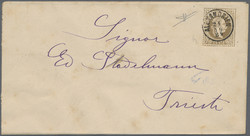 Signor
Ed Stadelmann
Trieste